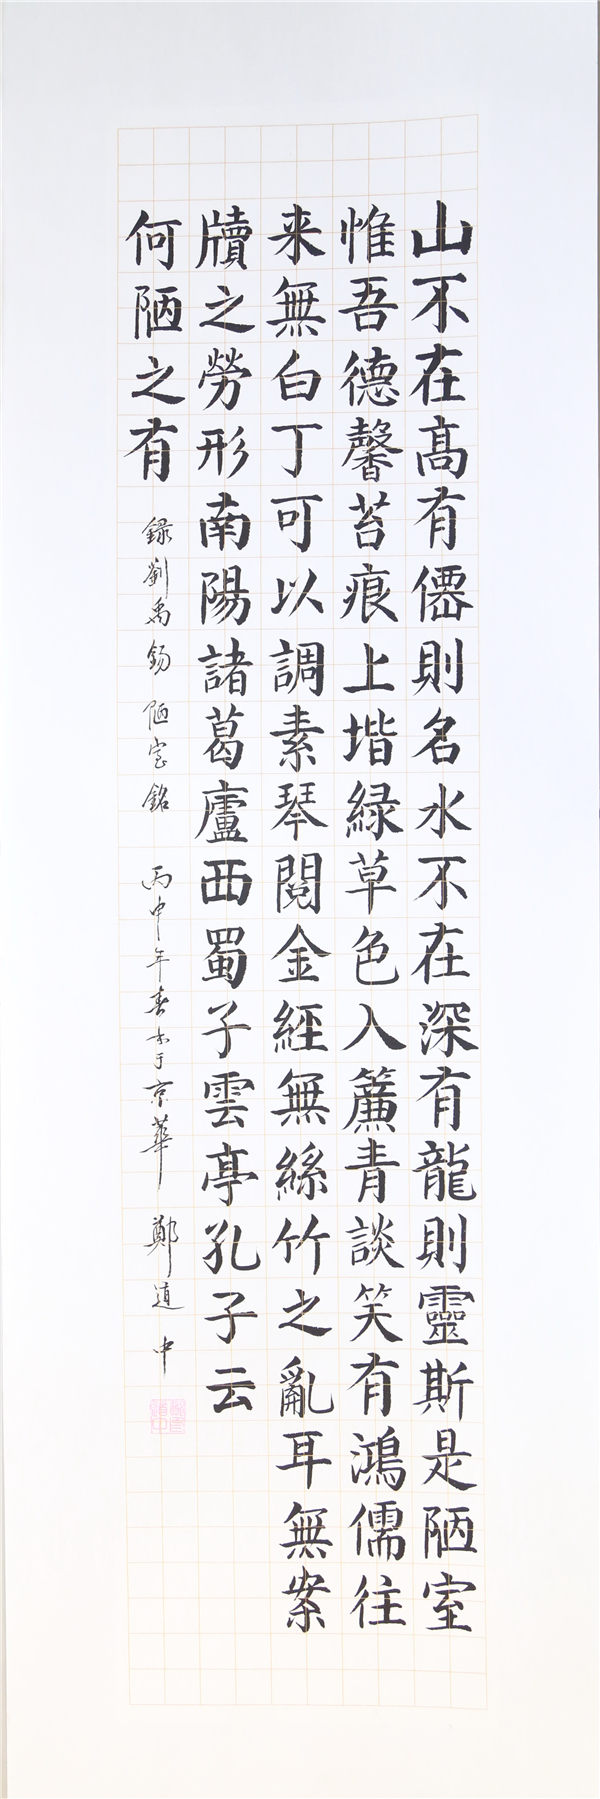 山不在高有僊則名水不在深有龍則靈斯是陋室
惟吾德馨苔痕上堦緑草色入簾青談笑有鴻儒往
来無白丁可以調素琴閲金經無絲竹之亂耳無案
牘之勞形南陽諸葛廬西蜀子雲亭孔子云
何陋之有
錄劉禹錫陋室銘 丙申年春書于京華 鄭道中